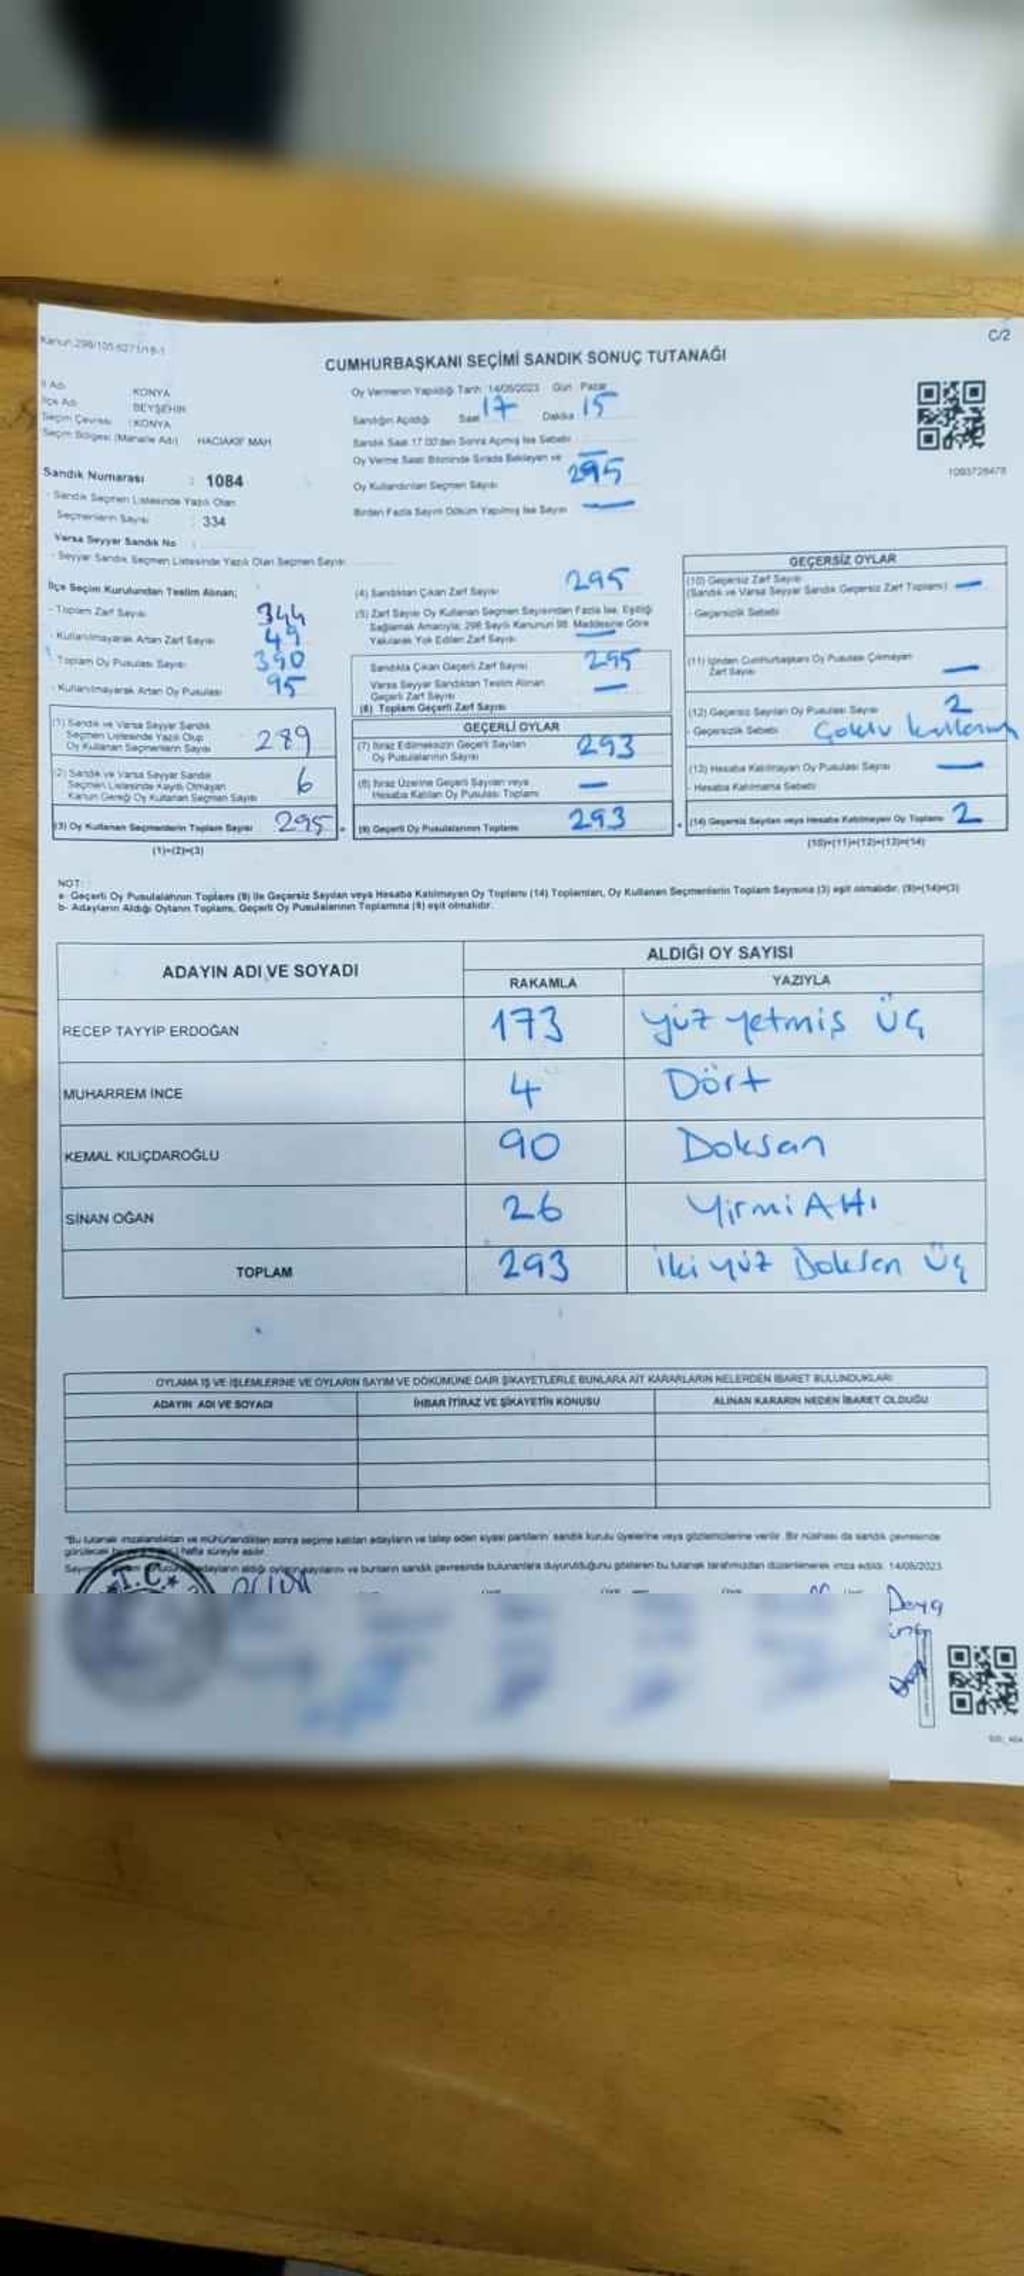 C/2
CUMHURBAŞKANI SEÇİMİ SANDIK SONUÇ TUTANAĞI
İl Adı KONYA
İlçe Adı BEYŞEHİR
Seçim Çevresi : KONYA
Seçim Bölgesi (Mahalle Adı) HACIAKİF MAH
Sandık Numarası : 1084
- Sandık Seçmen Listesinde Yazılı Olan
Seçmenlerin Sayısı : 334
Varsa Seyyar Sandık No :
- Seyyar Sandık Seçmen Listesinde Yazılı Olan Seçmen Sayısı
Oy Vermenin Yapıldığı Tarih 14/05/2023 Gün Pazar
Sandığın Açıldığı Saat 17 Dakika 15
Sandık Saat 17.00'den Sonra Açılmış İse Sebebi
Oy Verme Saati Bitiminde Sırada Bekleyen ve —
Oy Kullandırılan Seçmen Sayısı 295
Birden Fazla Sayım Döküm Yapılmış İse Sayısı —
1093728478
İlçe Seçim Kurulundan Teslim Alınan;
- Toplam Zarf Sayısı 344
- Kullanılmayarak Artan Zarf Sayısı 49
- Toplam Oy Pusulası Sayısı 390
- Kullanılmayarak Artan Oy Pusulası 95
(1) Sandık ve Varsa Seyyar Sandık
Seçmen Listesinde Yazılı Olup
Oy Kullanan Seçmenlerin Sayısı 289
(2) Sandık ve Varsa Seyyar Sandık
Seçmen Listesinde Kayıtlı Olmayan
Kanun Gereği Oy Kullanan Seçmen Sayısı 6
(3) Oy Kullanan Seçmenlerin Toplam Sayısı 295
(1)+(2)=(3)
(4) Sandıktan Çıkan Zarf Sayısı 295
(5) Zarf Sayısı Oy Kullanan Seçmen Sayısından Fazla İse, Eşitliği
Sağlamak Amacıyla; 298 Sayılı Kanunun 98. Maddesine Göre
Yakılarak Yok Edilen Zarf Sayısı —
Sandıkta Çıkan Geçerli Zarf Sayısı 295
Varsa Seyyar Sandıktan Teslim Alınan
Geçerli Zarf Sayısı —
(6) Toplam Geçerli Zarf Sayısı
GEÇERLİ OYLAR
(7) İtiraz Edilmeksizin Geçerli Sayılan
Oy Pusulalarının Sayısı 293
(8) İtiraz Üzerine Geçerli Sayılan veya
Hesaba Katılan Oy Pusulası Toplamı —
(9) Geçerli Oy Pusulalarının Toplamı 293
GEÇERSİZ OYLAR
(10) Geçersiz Zarf Sayısı
(Sandık ve Varsa Seyyar Sandık Geçersiz Zarf Toplamı) —
- Geçersizlik Sebebi
(11) İçinden Cumhurbaşkanı Oy Pusulası Çıkmayan
Zarf Sayısı —
(12) Geçersiz Sayılan Oy Pusulası Sayısı 2
- Geçersizlik Sebebi Çoklu kullanım
(13) Hesaba Katılmayan Oy Pusulası Sayısı —
- Hesaba Katılmama Sebebi
(14) Geçersiz Sayılan veya Hesaba Katılmayan Oy Toplamı 2
(10)+(11)+(12)+(13)=(14)
NOT:
a- Geçerli Oy Pusulalarının Toplamı (9) ile Geçersiz Sayılan veya Hesaba Katılmayan Oy Toplamı (14) Toplamları, Oy Kullanan Seçmenlerin Toplam Sayısına (3) eşit olmalıdır. (9)+(14)=(3)
b- Adayların Aldığı Oyların Toplamı, Geçerli Oy Pusulalarının Toplamına (9) eşit olmalıdır.
ADAYIN ADI VE SOYADI ALDIĞI OY SAYISI
RAKAMLA YAZIYLA
RECEP TAYYİP ERDOĞAN 173 yüz yetmiş üç
MUHARREM İNCE 4 Dört
KEMAL KILIÇDAROĞLU 90 Doksan
SİNAN OĞAN 26 Yirmi Altı
TOPLAM 293 iki yüz Doksan Üç
OYLAMA İŞ VE İŞLEMLERİNE VE OYLARIN SAYIM VE DÖKÜMÜNE DAİR ŞİKAYETLERLE BUNLARA AİT KARARLARIN NELERDEN İBARET BULUNDUKLARI
ADAYIN ADI VE SOYADI İHBAR İTİRAZ VE ŞİKAYETİN KONUSU ALINAN KARARIN NEDEN İBARET OLDUĞU
"Bu tutanak imzalandıktan ve mühürlendikten sonra seçime katılan adayların ve talep eden siyasi partilerin sandık kurulu üyelerine veya gözlemcilerine verilir. Bir nüshası da sandık çevresinde
hafta süreyle asılır.
aldığı oyların sayılarını ve bunların sandık çevresinde bulunanlara duyurulduğunu gösteren bu tutanak tarafımızdan düzenlenerek imza edildi. 14/05/2023
T.C.